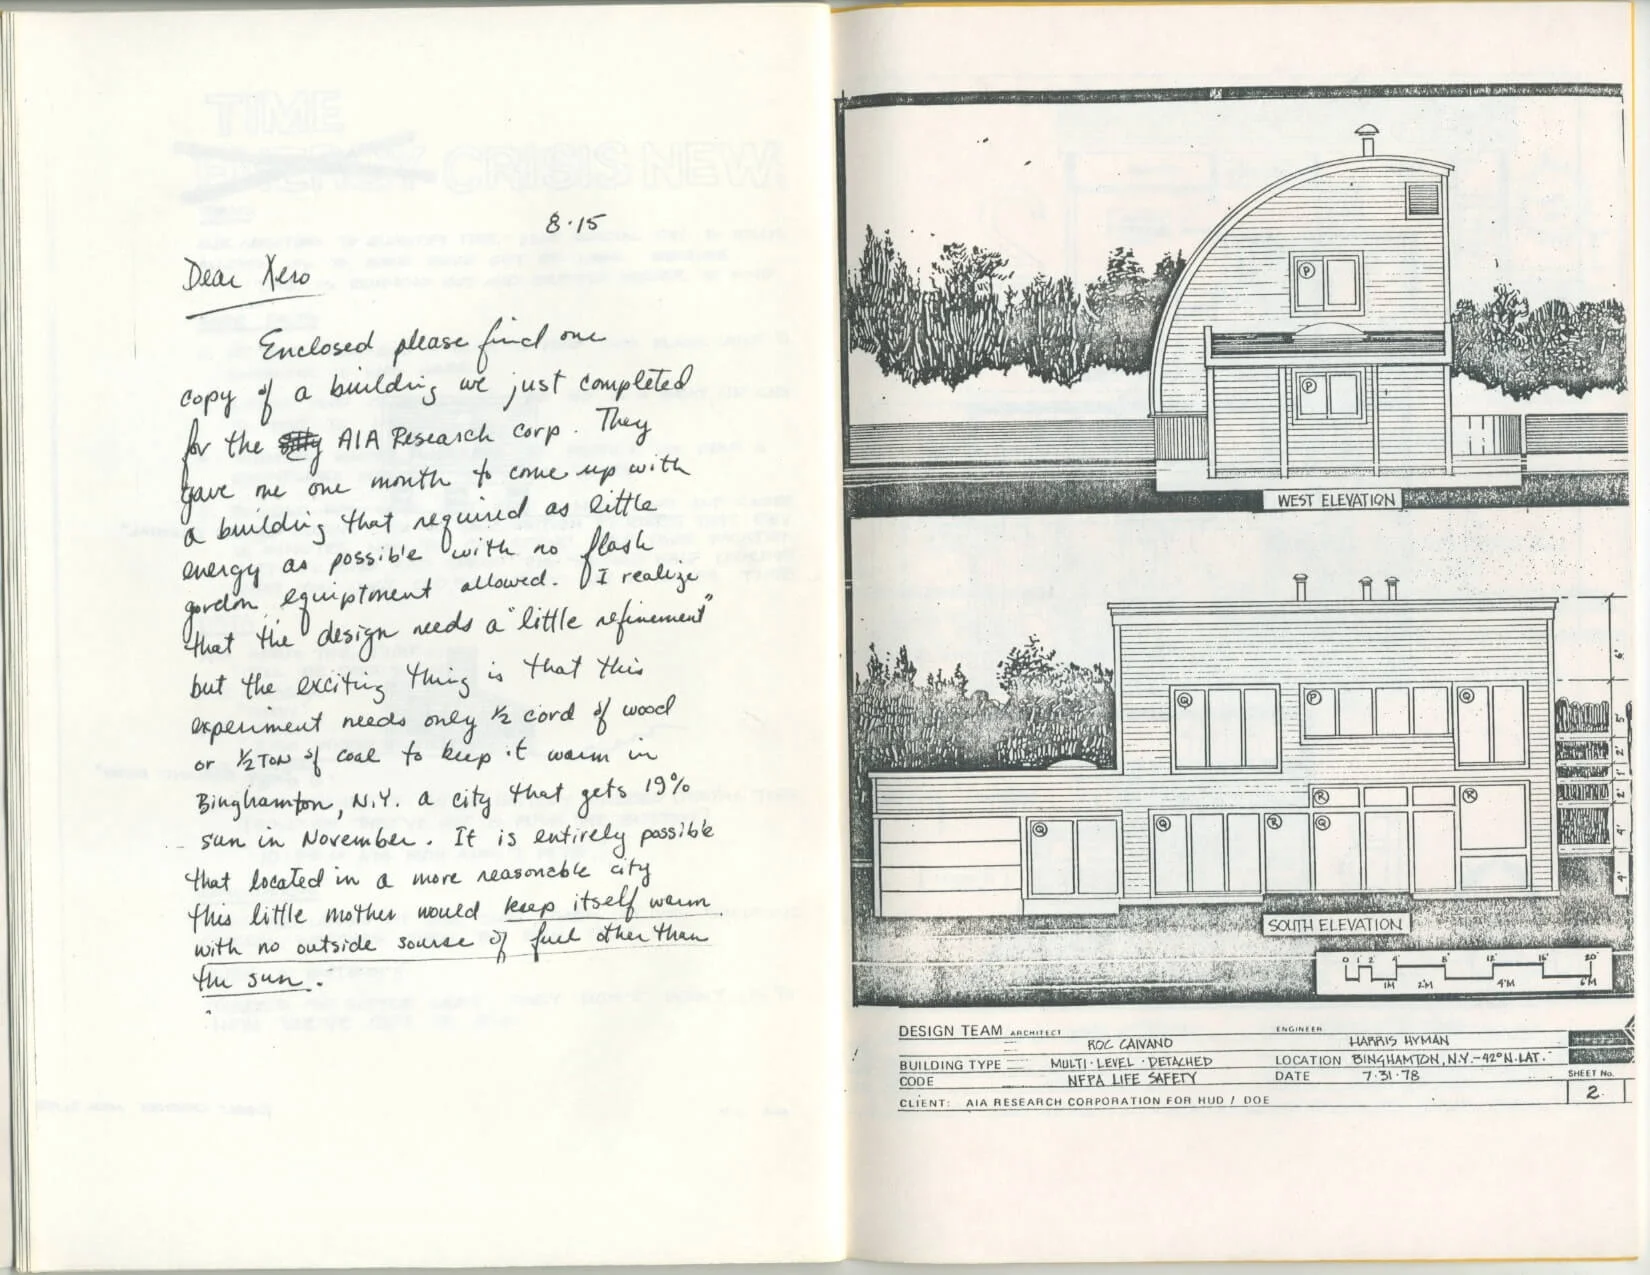 8·15
Dear Xero
Enclosed please find one
copy of a building we just completed
for the AIA Research corp. They
gave me one month to come up with
a building that required as little
energy as possible with no flash
gordon equiptment allowed. I realize
that the design needs a "little refinement"
but the exciting thing is that this
experiment needs only ½ cord of wood
or ½ TON of coal to keep it warm in
Binghamton, N.Y. a city that gets 19%
sun in November. It is entirely possible
that located in a more reasonable city
this little mother would keep itself warm
with no outside sourse of fuel other than
the sun.
P
P
WEST ELEVATION
Q
P
Q
R
R
Q
Q
R
Q
6'
5'
2'
1'
2'
4'
4'
SOUTH ELEVATION
0 1' 2' 4' 8' 12' 16' 20'
1M 2'M 4'M 6'M
DESIGN TEAM ARCHITECT ENGINEER
ROC CAIVANO HARRIS HYMAN
BUILDING TYPE MULTI·LEVEL·DETACHED LOCATION BINGHAMTON, N.Y.-42°N.LAT.
CODE NFPA LIFE SAFETY DATE 7·31·78 SHEET No.
CLIENT: AIA RESEARCH CORPORATION FOR HUD / DOE 2